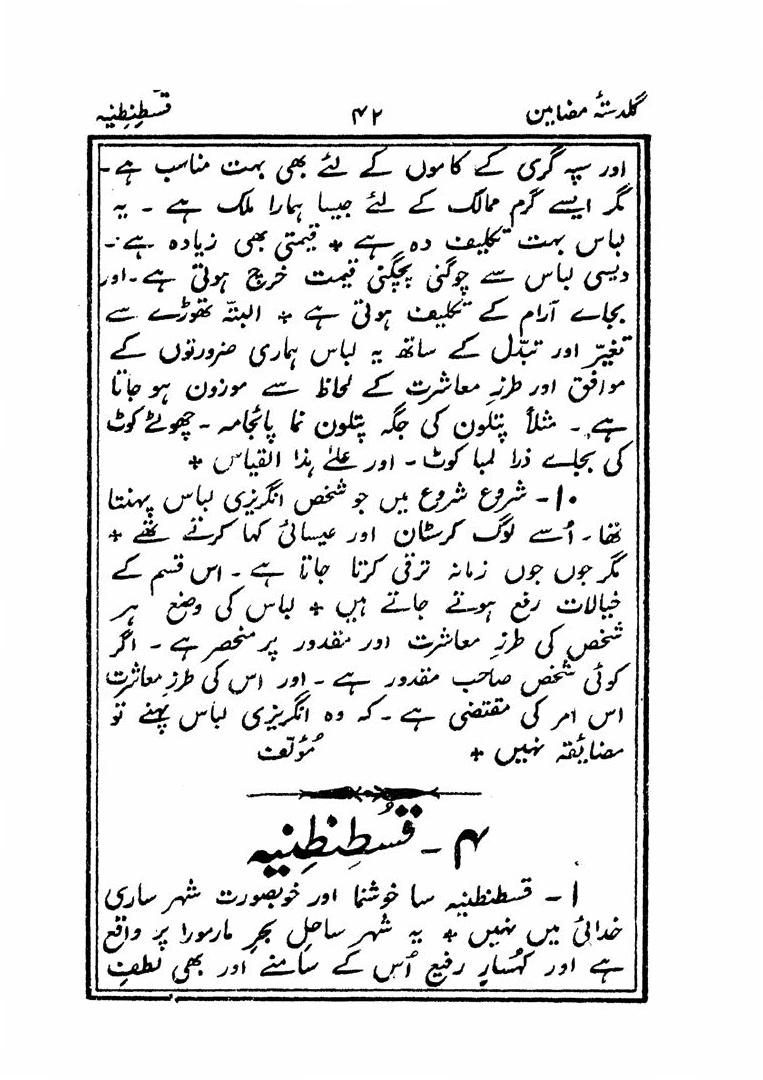 گلدستۂ مضامین ۴۲ قسطنطنیہ
اور سپہ گری کے کاموں کے لئے بھی بہت مناسب ہے۔
مگر ایسے گرم ممالک کے لئے جیسا ہمارا ملک ہے ۔ یہ
لباس بہت تکلیف دہ ہے + قیمتی بھی زیادہ ہے ۔
دیسی لباس سے چوگنی پچگنی قیمت خرچ ہوتی ہے ۔ اور
بجاے آرام کے تکلیف ہوتی ہے + البتہ تھوڑے سے
تغیّر اور تبدّل کے ساتھ یہ لباس ہماری ضرورتوں کے
موافق اور طرزِ معاشرت کے لحاظ سے موزون ہو جاتا
ہے ۔ مثلاً پتلون کی جگہ پتلون نما پائجامہ ۔ چھوٹے کوٹ
کی بجاے ذرا لمبا کوٹ ۔ اور علےٰ ہذا القیاس +
۱۰ ۔ شروع شروع میں جو شخص انگریزی لباس پہنتا
تھا ۔ اُسے لوگ کرسٹان اور عیسائی کہا کرتے تھے +
مگر جوں جوں زمانہ ترقی کرتا جاتا ہے ۔ اس قسم کے
خیالات رفع ہوتے جاتے ہیں + لباس کی وضع ہر
شخص کی طرزِ معاشرت اور مقدور پر منحصر ہے ۔ اگر
کوئی شخص صاحب مقدور ہے ۔ اور اس کی طرزِ معاشرت
اس امر کی مقتضی ہے ۔ کہ وہ انگریزی لباس پہنے تو
مضائقہ نہیں + مُؤلّف
۴ ۔ قُسطِنطِنیہ
۱ ۔ قسطنطنیہ سا خوشنما اور خوبصورت شہر ساری
خدائی میں نہیں + یہ شہر ساحلِ بحرِ مارمورا پر واقع
ہے اور کہُسارِ رفیع اُس کے سامنے اور بھی لُطف